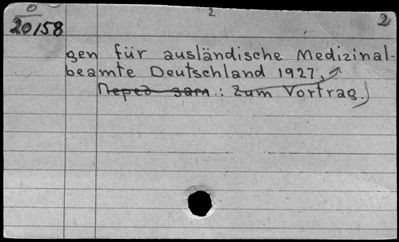 0
20/58
2
2
gen für ausländische Medizinal-
beamte Deutschland 1927,
Перед загл.: Zum Vortrag.)